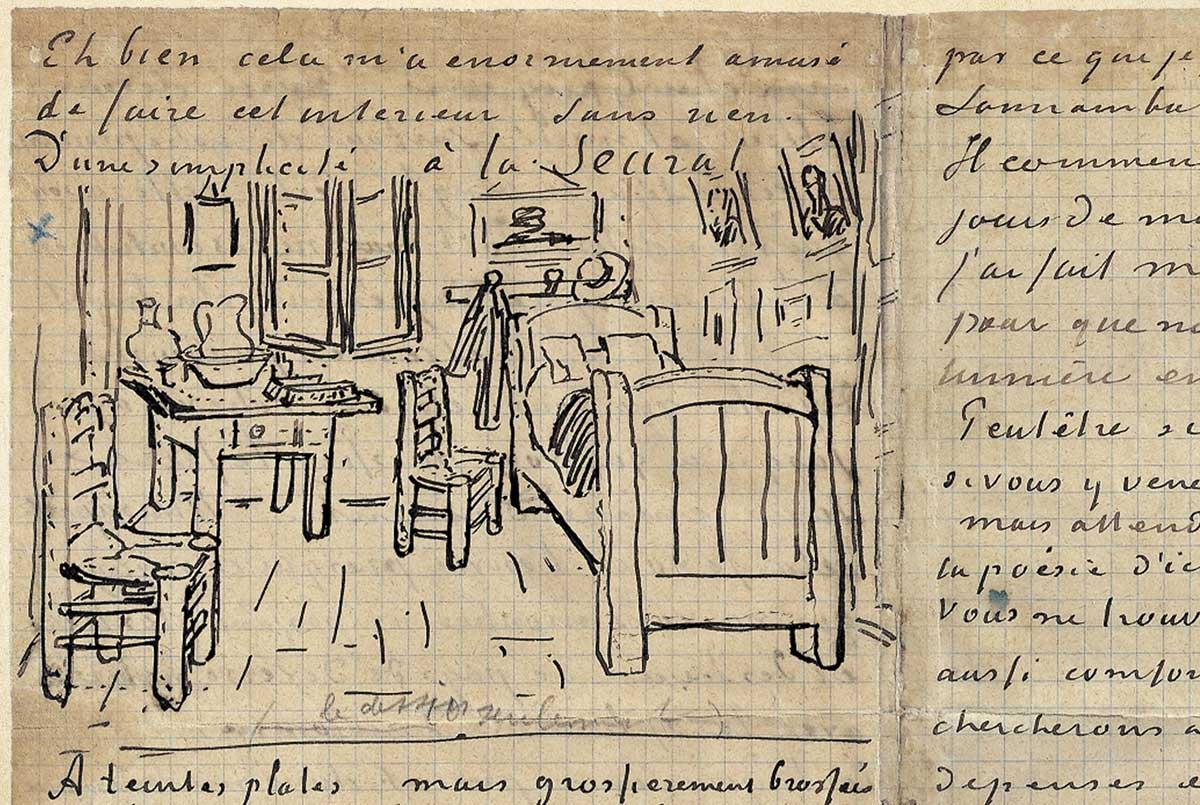 Eh bien cela m'a enormement amusé
de faire cet interieur sans rien.
D'une simplicité à la Seurat
le dessin seulement
A teintes plates mais grossierement brossées
par ce que je
Il commen
jours de m
j'ai fait m
pour que no
lumière en
Peutêtre se
si vous y vene
mais attend
la poésie d'ic
Vous ne trouv
aussi comfor
chercherons a
depenses e